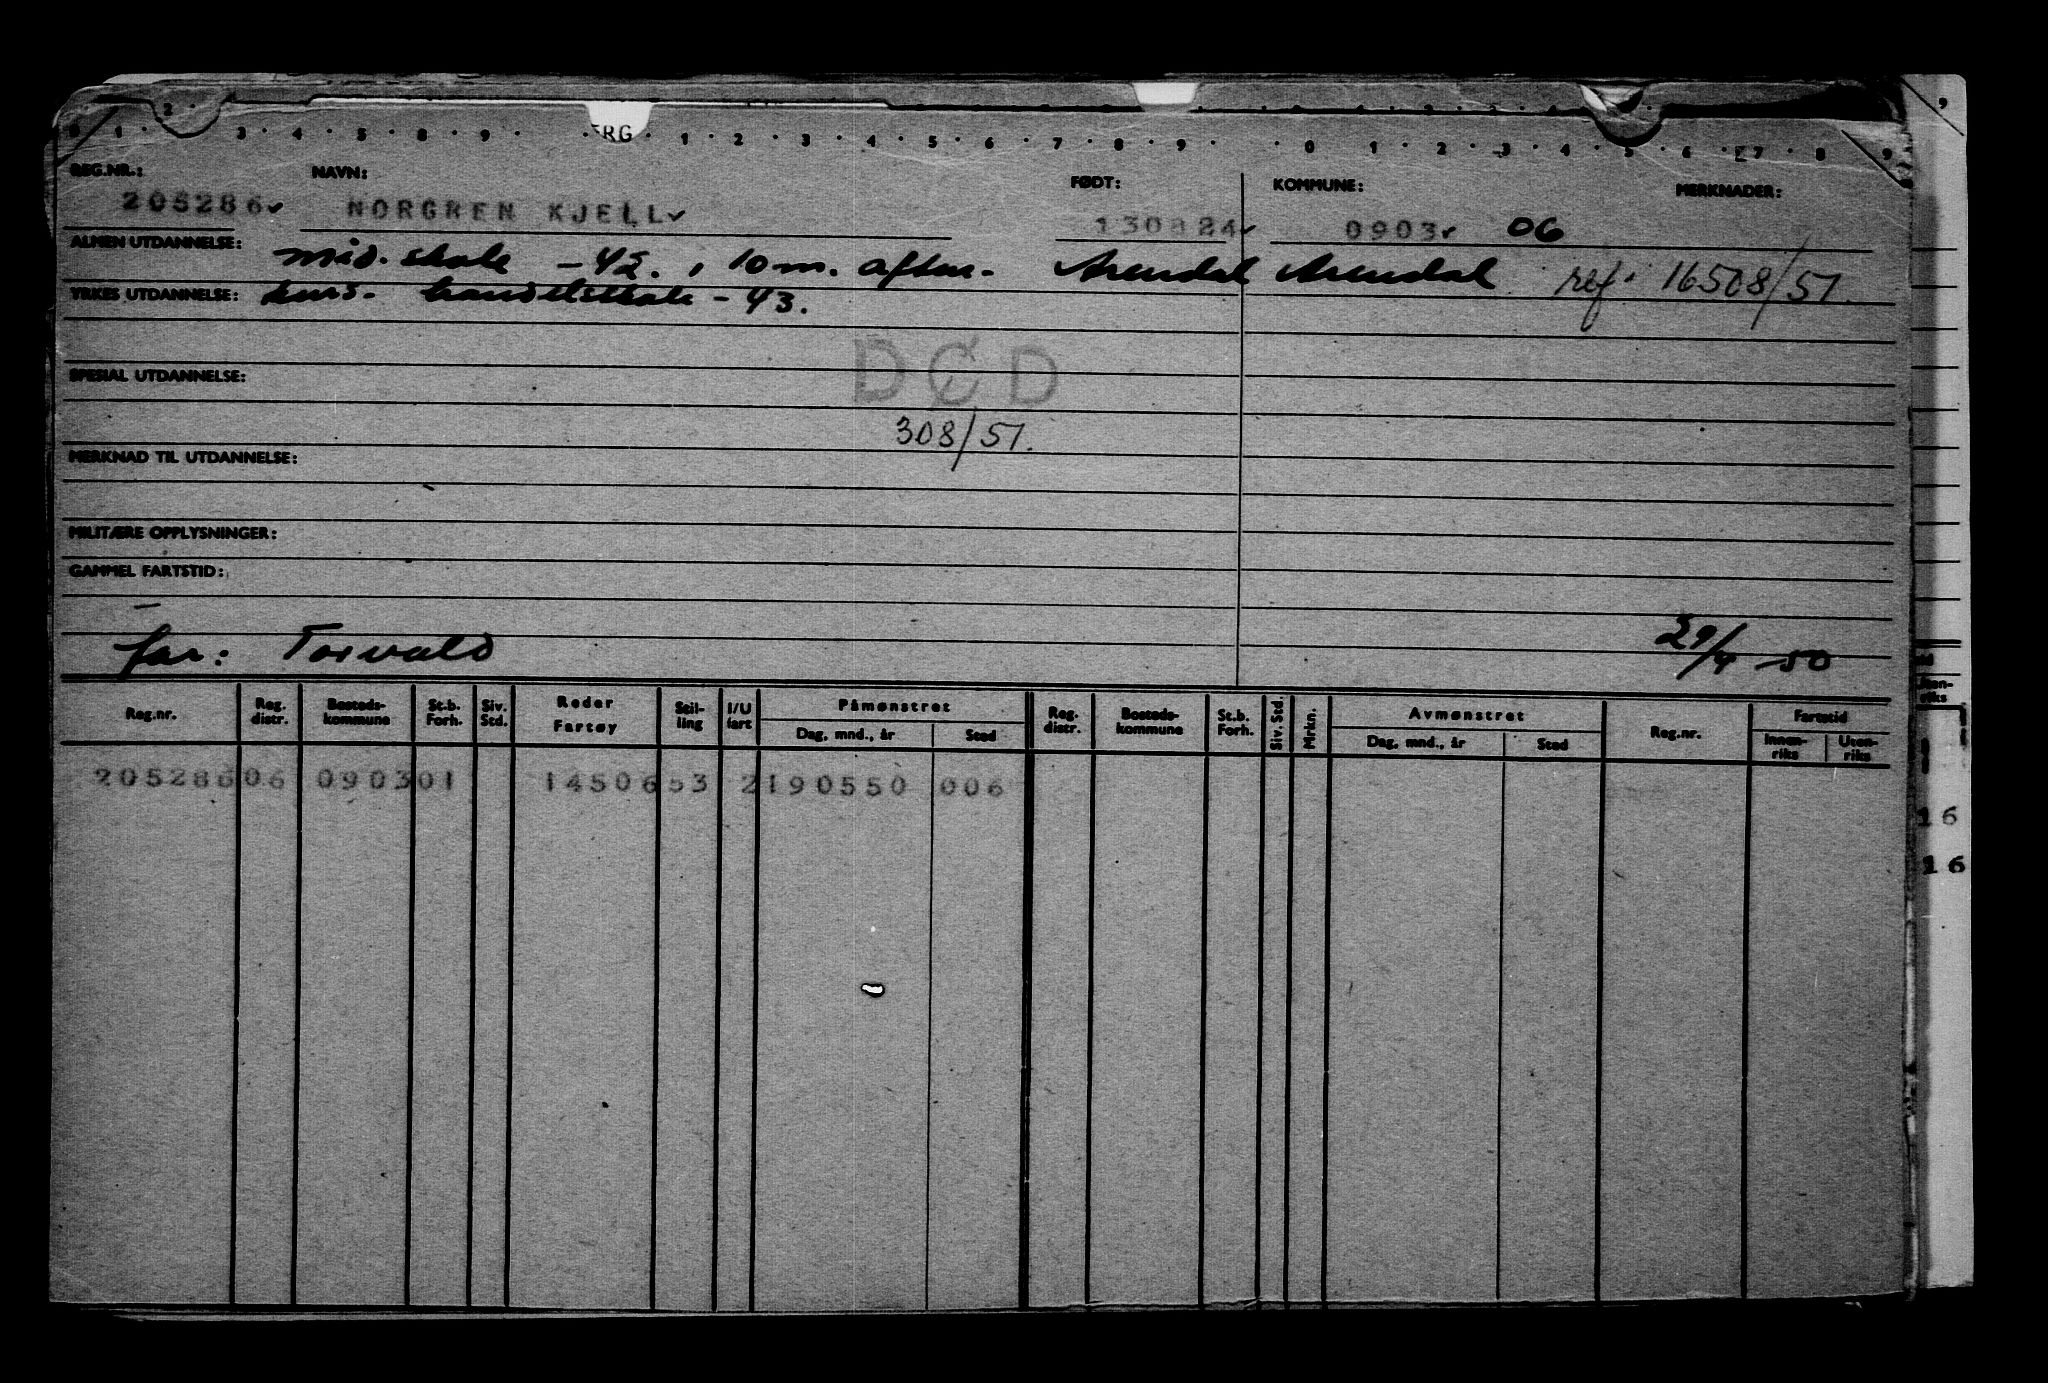 2 · 9
1 · 3 · 4 · 5 · 8 · 9 · ERG · 1 · 2 · 3 · 4 · 5 · 6 · 7 · 8 · 9 · 0 · 1 · 2 · 3 · 4 · 5 · 6 · 7 · 8 · 9
REG.NR.: NAVN: FØDT: KOMMUNE: MERKNADER:
205286 ✓ NORGREN KJELL ✓ 130824 ✓ 0903 ✓ 06
ALMEN UTDANNELSE: mid. skole - 42. , 10 m. aften- Arendal Arendal ref. 16508/51.
YRKES UTDANNELSE: kurs. handelsskole - 43.
DCD
SPESIAL UTDANNELSE:
308/51.
MERKNAD TIL UTDANNELSE:
MILITÆRE OPPLYSNINGER:
GAMMEL FARTSTID:
—
far: Torvald 29/4 -50
Reg.nr. Reg. distr. Bosteds-kommune St.b. Forh. Siv. Std. Reder Fartøy Stil-ling I/U fart Påmønstret Dag, mnd., år Sted Reg. distr. Bosteds-kommune St.b. Forh. Siv. Std. Mrkn. Avmønstret Dag, mnd., år Sted Reg.nr. Fartstid Innen-riks Uten-riks
205286 06 0903 01 14506 53 2 190550 006
16
16